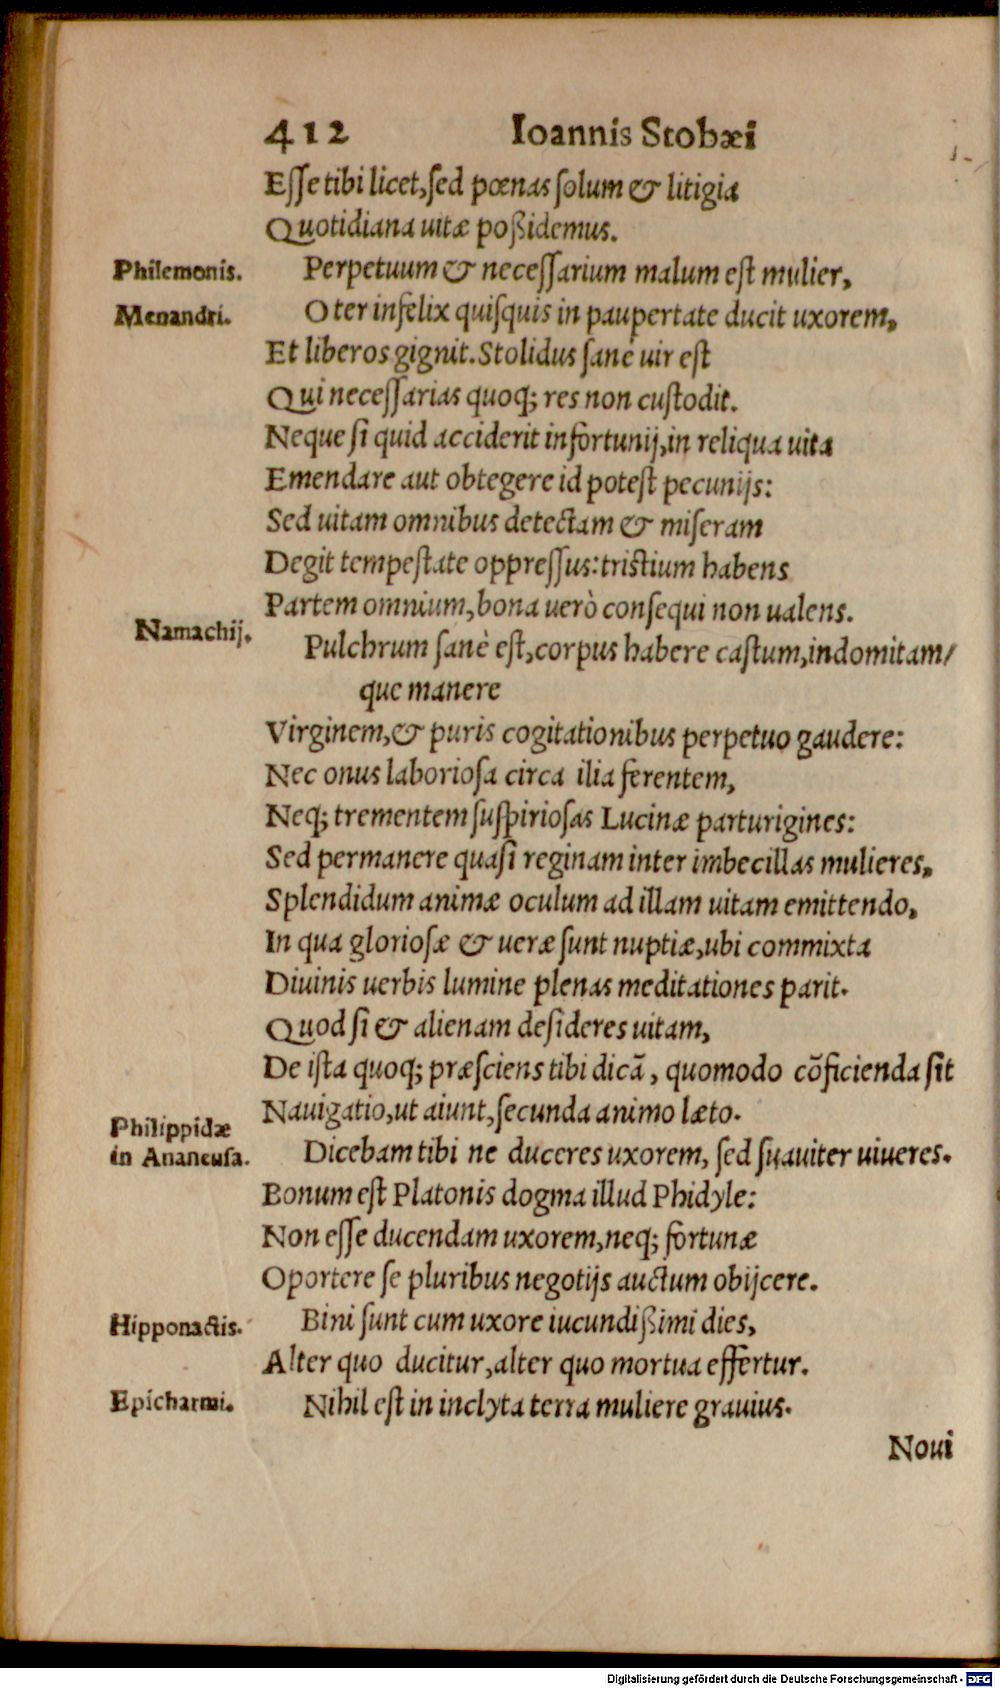 412 Ioannis Stobæi
Esse tibi licet, sed pœnas solum & litigia
Quotidiana uitæ poßidemus.
Philemonis. Perpetuum & necessarium malum est mulier,
Menandri. O ter infelix quisquis in paupertate ducit uxorem,
Et liberos gignit. Stolidus sanè uir est
Qui necessarias quoq; res non custodit.
Neque si quid acciderit infortunij, in reliqua uita
Emendare aut obtegere id potest pecunijs:
Sed uitam omnibus detectam & miseram
Degit tempestate oppressus: tristium habens
Partem omnium, bona uerò consequi non ualens.
Namachij. Pulchrum sanè est, corpus habere castum, indomitam/
que manere
Virginem, & puris cogitationibus perpetuo gaudere:
Nec onus laboriosa circa ilia ferentem,
Neq; trementem suspiriosas Lucinæ parturigines:
Sed permanere quasi reginam inter imbecillas mulieres,
Splendidum animæ oculum ad illam uitam emittendo,
In qua gloriosæ & ueræ sunt nuptiæ, ubi commixta
Diuinis uerbis lumine plenas meditationes parit.
Quod si & alienam desideres uitam,
De ista quoq; præsciens tibi dicā, quomodo cōficienda sit
Nauigatio, ut aiunt, secunda animo læto.
Philippidæ
in Ananeusa. Dicebam tibi ne duceres uxorem, sed suauiter uiueres.
Bonum est Platonis dogma illud Phidyle:
Non esse ducendam uxorem, neq; fortunæ
Oportere se pluribus negotijs auctum obijcere.
Hipponactis. Bini sunt cum uxore iucundißimi dies,
Alter quo ducitur, alter quo mortua effertur.
Epicharmi. Nihil est in inclyta terra muliere grauius.
Noui
Digitalisierung gefördert durch die Deutsche Forschungsgemeinschaft - DFG